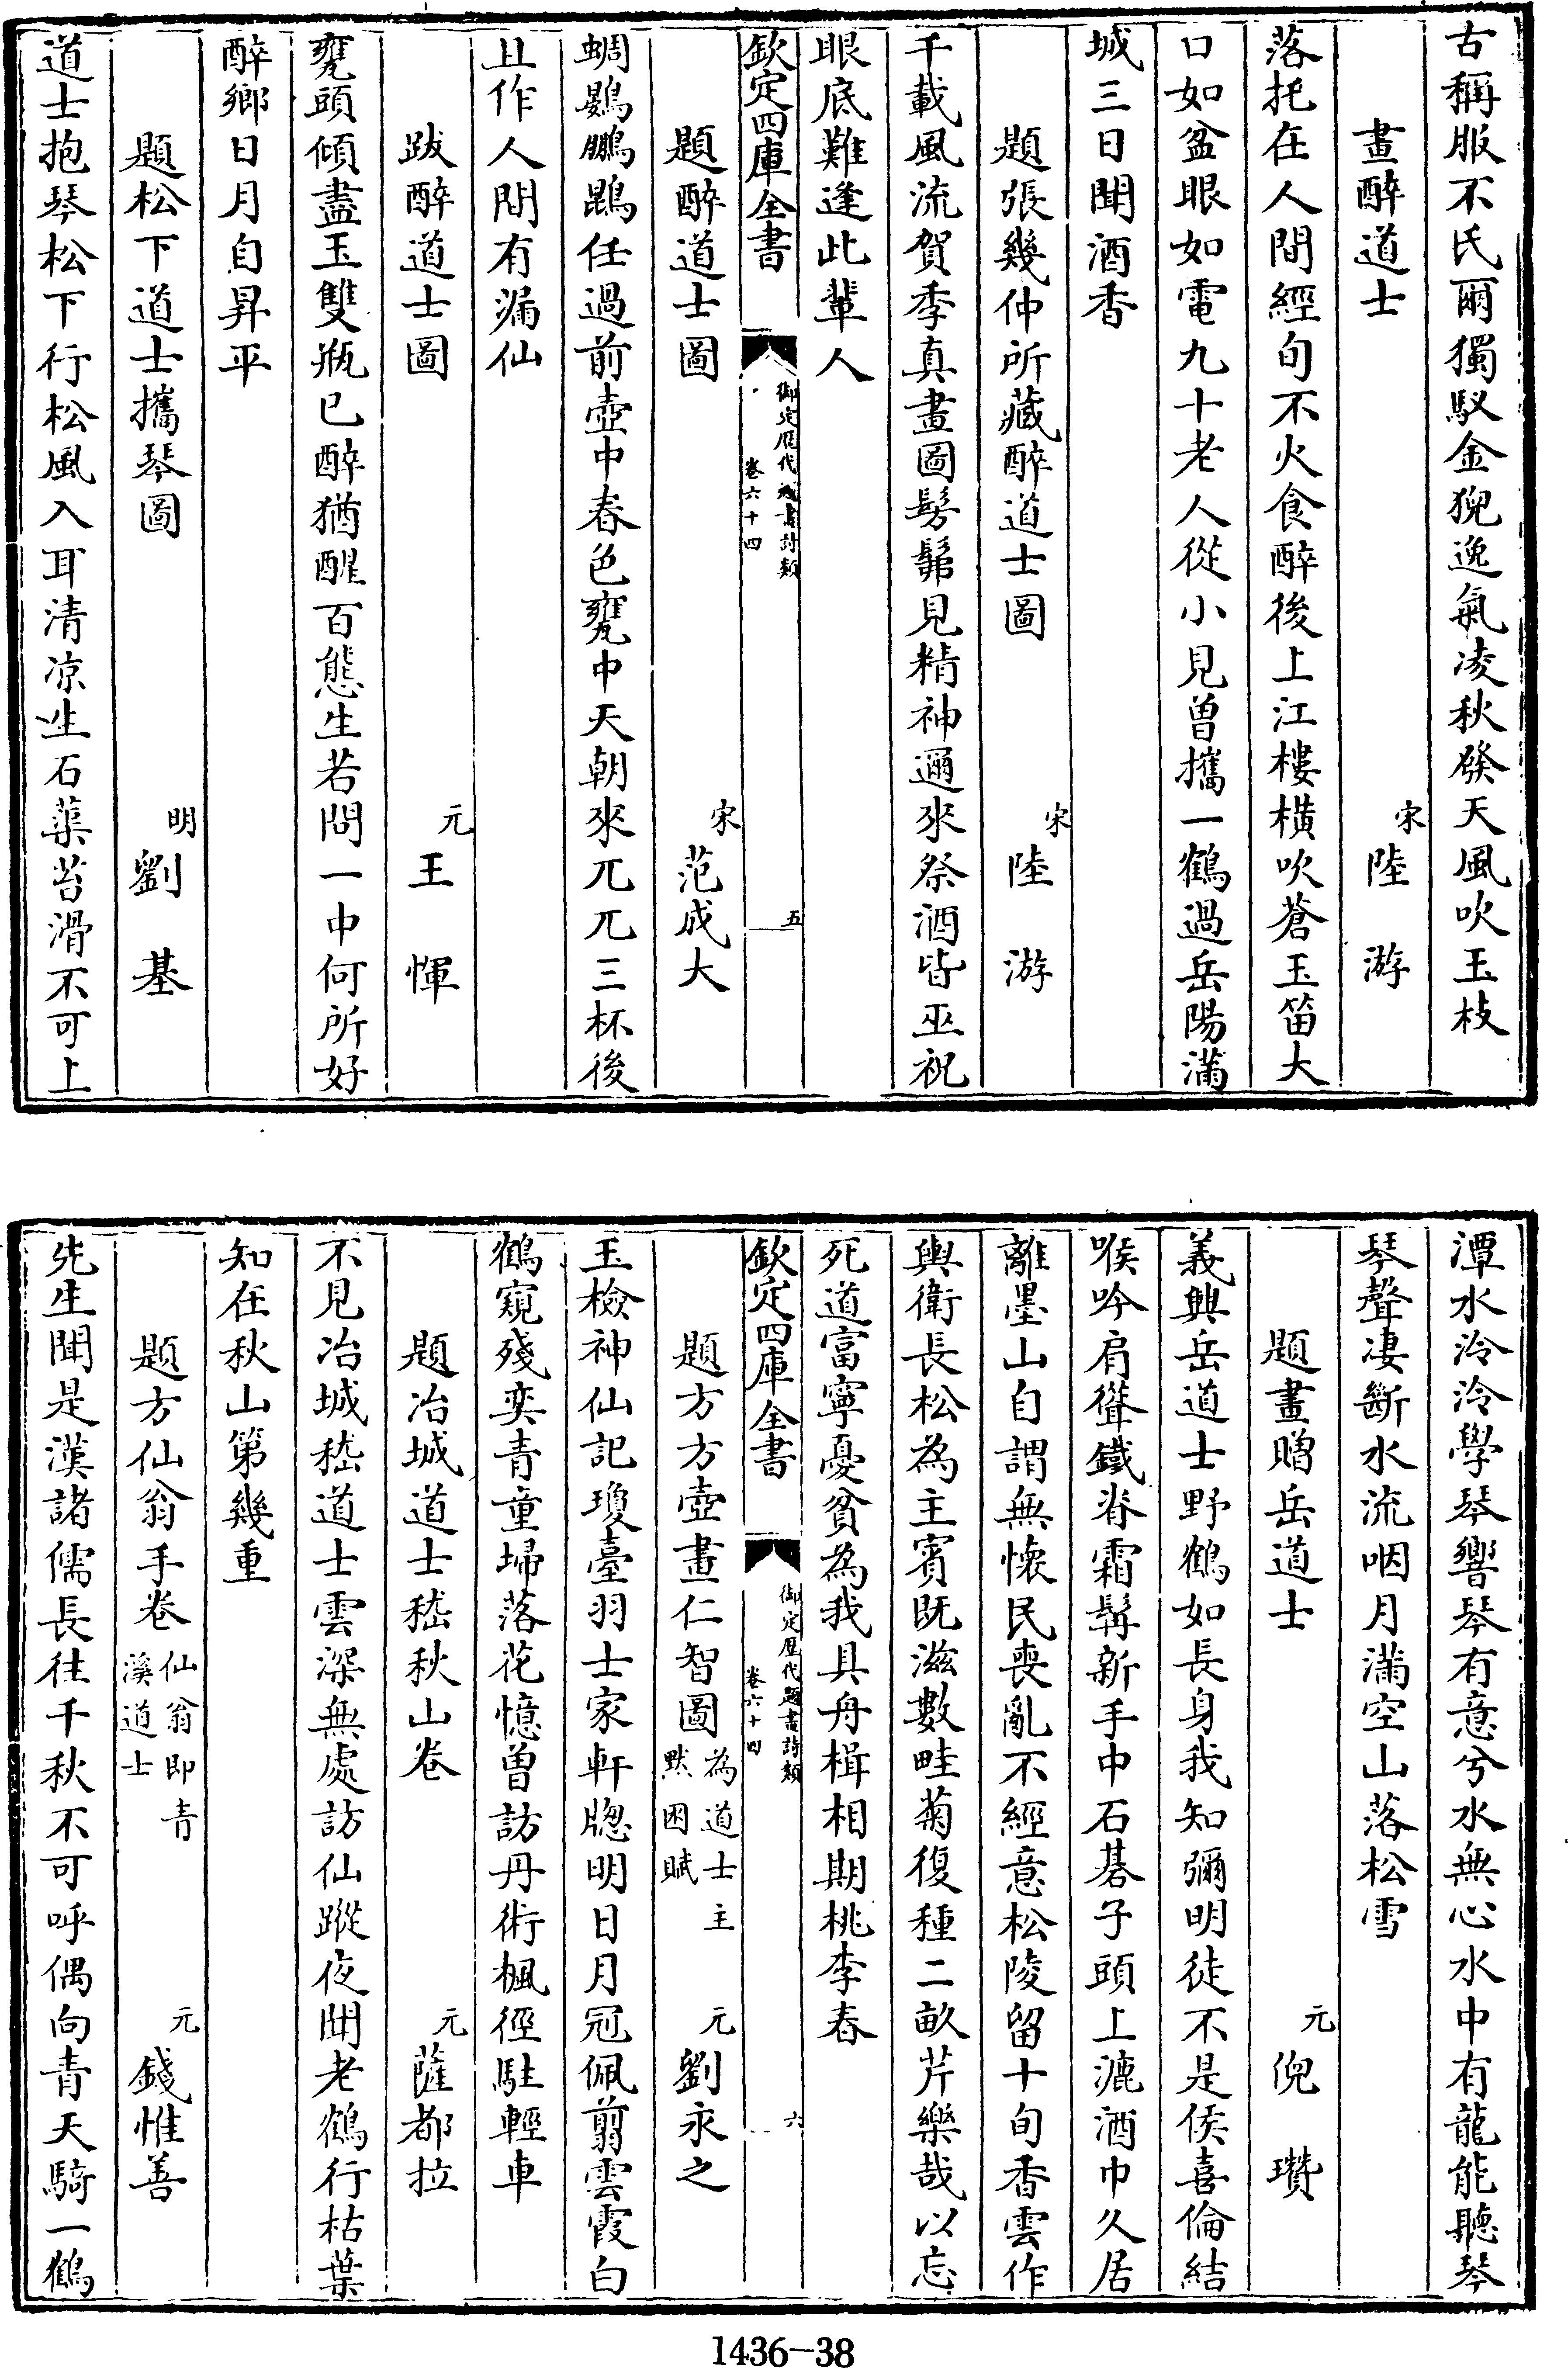 古稱服不氏爾獨馭金猊逸氣凌秋發天風吹玉枝
畫醉道士　宋陸游
落托在人間經旬不火食醉後上江樓橫吹蒼玉笛大
口如盆眼如電九十老人從小見曾攜一鶴過岳陽滿
城三日聞酒香
題張幾仲所藏醉道士圖　宋陸游
千載風流賀季真畫圖髣髴見精神邇來祭酒皆巫祝
眼底難逢此輩人
欽定四庫全書　御定歷代題畫詩類　卷六十四　五
題醉道士圖　宋范成大
蜩鷃鵬鵾任過前壺中春色甕中天朝來兀兀三杯後
且作人間有漏仙
跋醉道士圖　元王惲
甕頭傾盡玉雙瓶已醉猶醒百態生若問一中何所好
醉鄉日月自昇平
題松下道士攜琴圖　明劉基
道士抱琴松下行松風入耳清凉生石蕖苔滑不可上
潭水泠泠學琴響琴有意兮水無心水中有龍能聽琴
琴聲凄斷水流咽月滿空山落松雪
題畫贈岳道士　元倪瓚
義興岳道士野鶴如長身我知彌明徒不是侯喜倫結
喉吟肩聳鐵脊霜髯新手中石碁子頭上漉酒巾久居
離墨山自謂無懷民喪亂不經意松陵留十旬香雲作
輿衛長松為主賓既滋數畦菊復種二畝芹樂哉以忘
死道富寧憂貧為我具舟楫相期桃李春
欽定四庫全書　御定歷代題畫詩類　卷六十四　六
題方方壺畫仁智圖　為道士主默困賦　元劉永之
玉檢神仙記瓊臺羽士家軒牕明日月冠佩翦雲霞白
鶴窺殘奕青童埽落花憶曽訪丹術楓徑駐輕車
題冶城道士嵇秋山卷　元薩都拉
不見冶城嵇道士雲深無處訪仙蹤夜聞老鶴行枯葉
知在秋山第幾重
題方仙翁手卷　仙翁即青溪道士　元錢惟善
先生聞是漢諸儒長往千秋不可呼偶向青天騎一鶴
1436-38